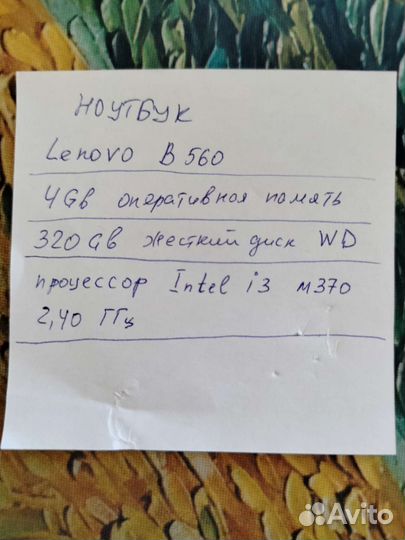 НОУТБУК
Lenovo B 560
4Gb оперативная память
320Gb жесткий диск WD
процессор Intel i3 м370
2,40 ГГц
Avito